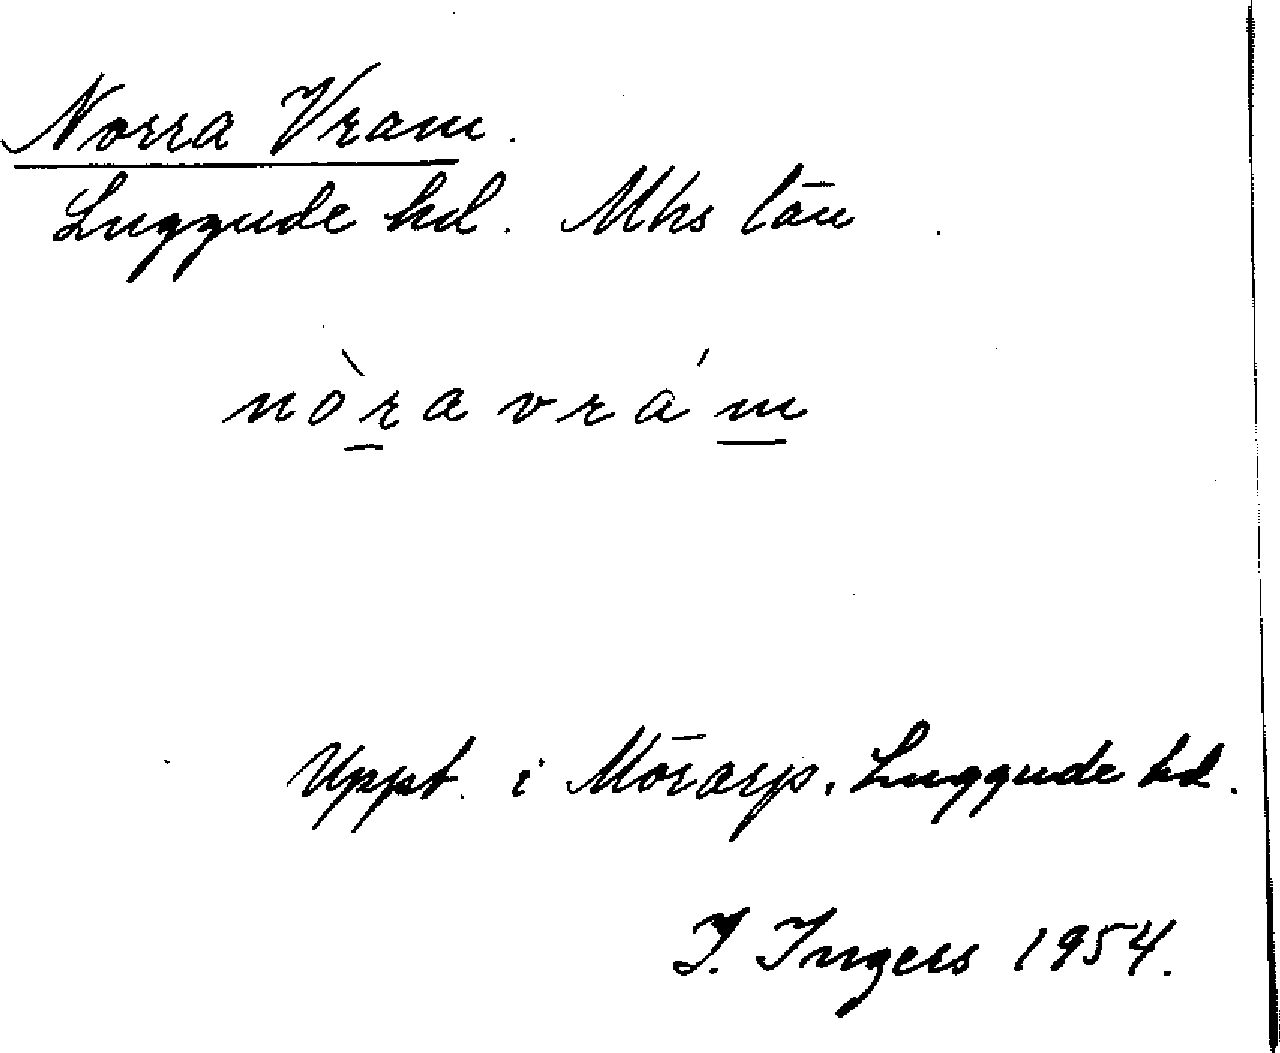 Norra Vram.
Luggude hd. Mhs län
nòra vrám
Uppt. i Mörarp, Luggude hd.
I. Ingers 1954.